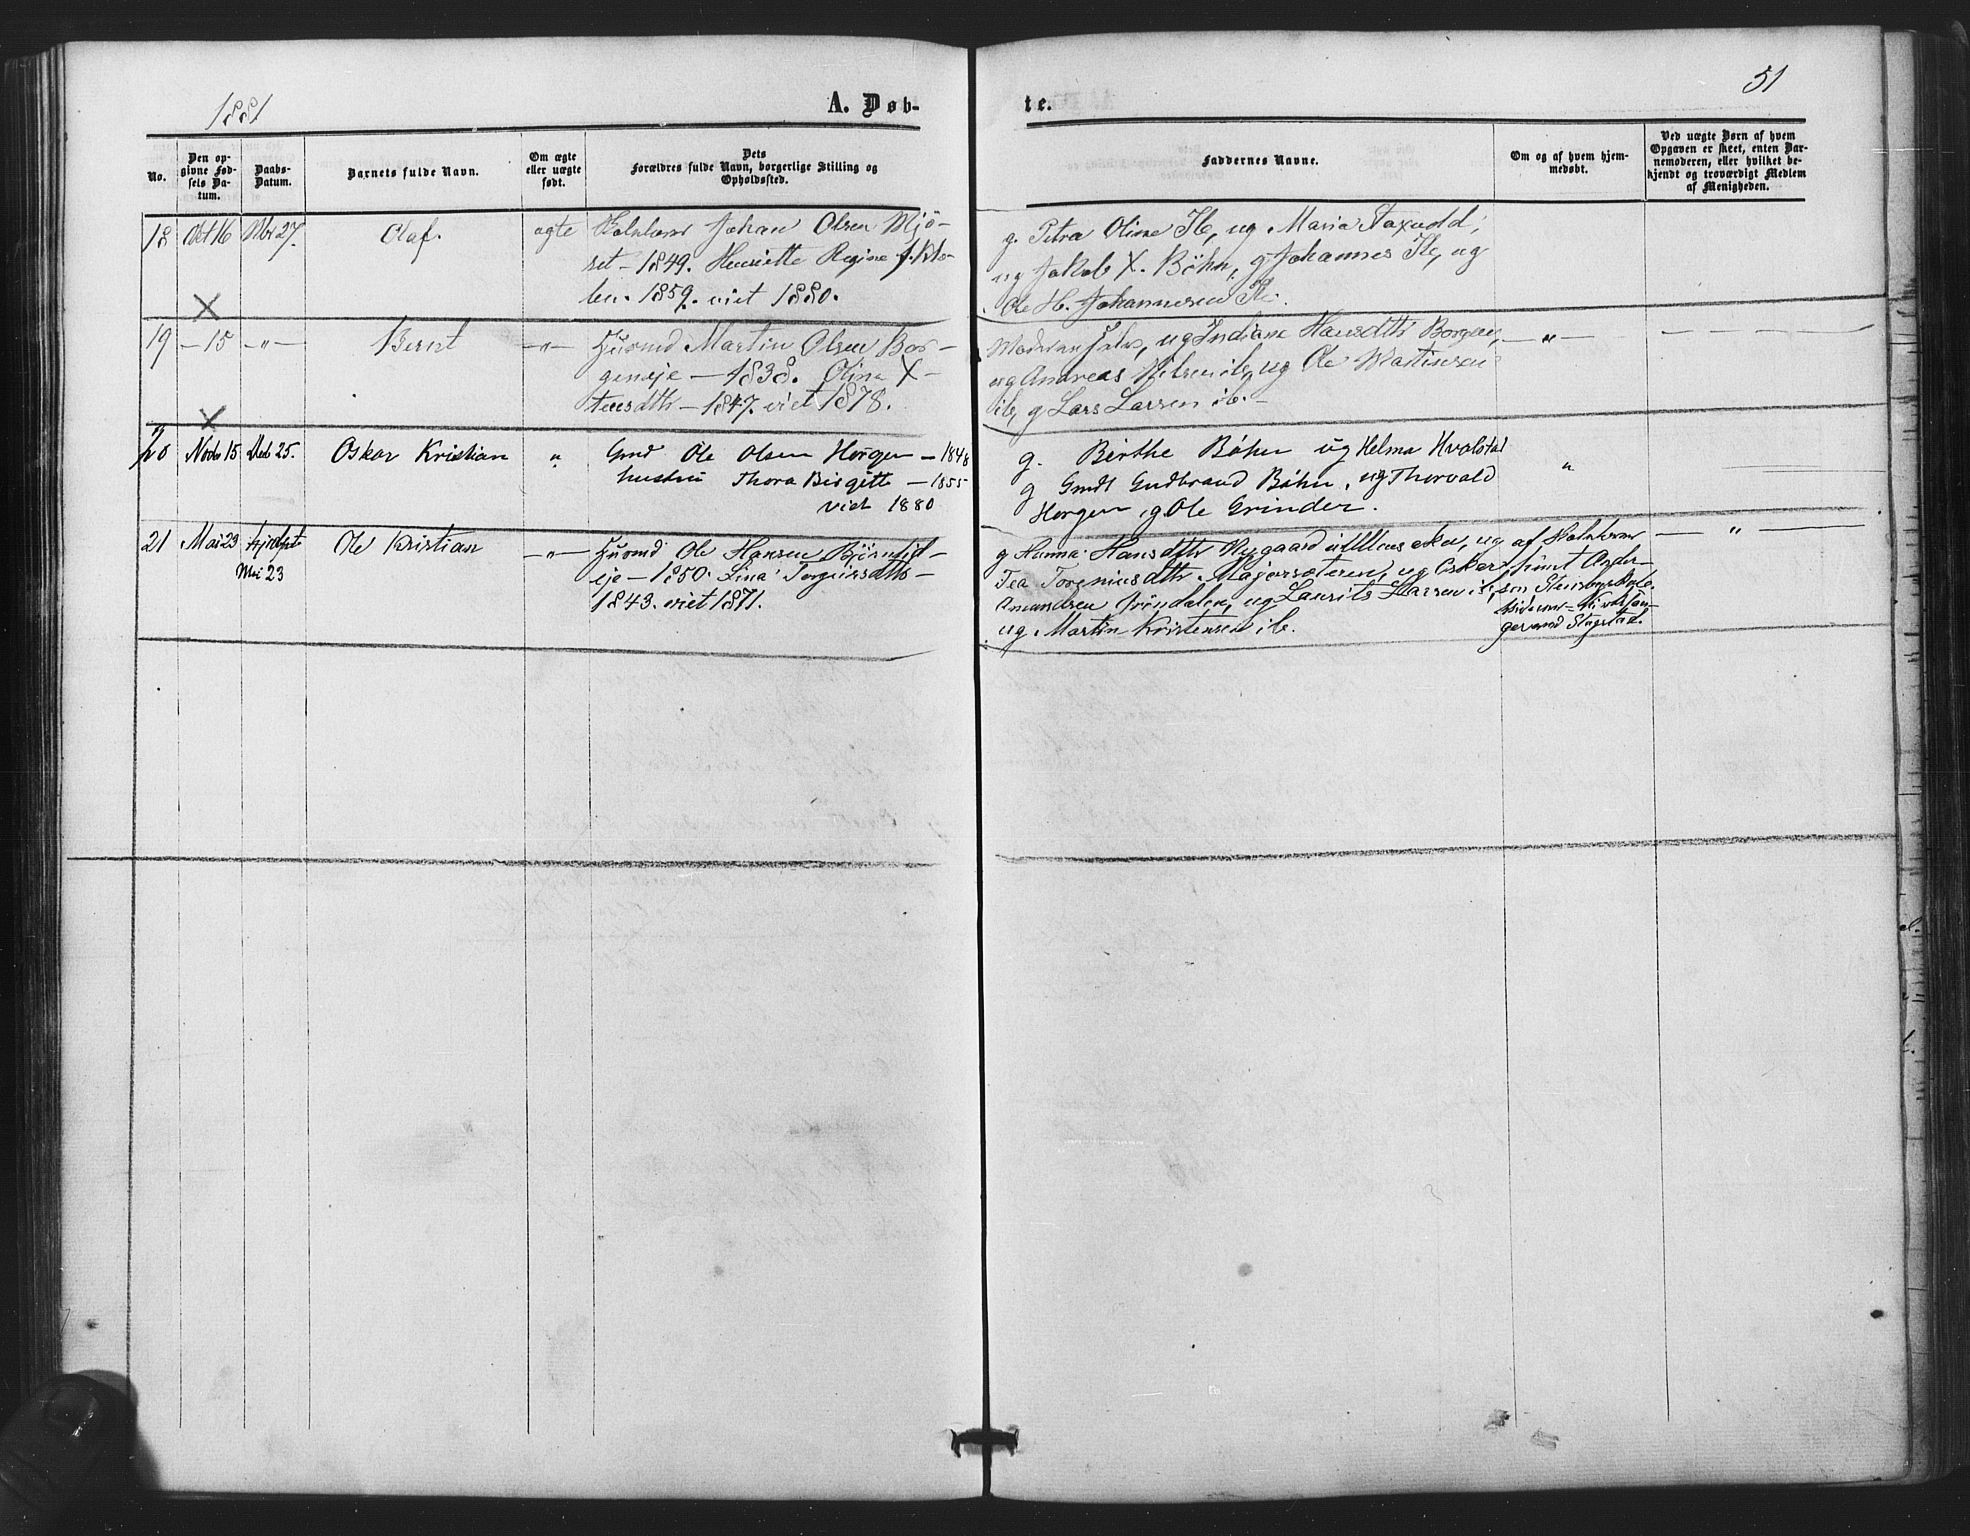 1881
A. Døb-
te.
51
No.
Den op-
givne Fød-
sels Da-
tum.
Daabs-
Datum.
Barnets fulde Navn.
Om ægte
eller uægte
født.
Dets
Forældres fulde Navn, borgerlige Stilling og
Opholdssted.
Faddernes Navne.
Om og af hvem hjem-
medøbt.
Ved uægte Børn af hvem
Opgaven er skeet, enten Bar-
nemoderen, eller hvilket be-
kjendt og troværdigt Medlem
af Menigheden.
18 Okt 16 Nbr 27. Olaf. ægte Johan Olsen Mjø-
set - 1849. Henriette Regine f.
1859. viet 1880.
g. Petra Oline Ile, ug Maria
ug Jakob X. Bøhn, g Johannes Ile, ug
Ole H. Johannesen Ile.
19 - 15 - " - Bernt - " - Husmd Martin Olsen Bor-
geneje - 1838. Olina X-
tensdtr - 1847. viet 1878.
ug Indiana Hansdtr Borgen,
ug Andreas Nilsen ib, ug Ole Martinsen
ib, g Lars Larsen ib. -
- " -
20 Novbr 15 Decbr 25. Oskar Kristian " Gmd Ole Olsen Horgen - 1848
hustru Thora Birgitte - 1855
viet 1880
g. Birthe Bøhn ug Helma Hvalstad
g Gmdt Gudbrand Bøhn, ug Thorvald
Horgen, g Ole Grinder.
"
21 Mai 23 hjdøpt
Mai 23
Ole Kristian - " - Husmd Ole Hansen
eje - 1850. Lina Torgersdtr -
1843. viet 1871.
g Hanna Hansdtr Nygaard ug
Tea Torgeniusdtr Majorsæteren, ug Oskar
Amundsen Trøndalen, ug Laurits Larsen ib,
ug Martin Kristensen ib.
af
Ander-
sen
Kirkesan-
ger
- " -